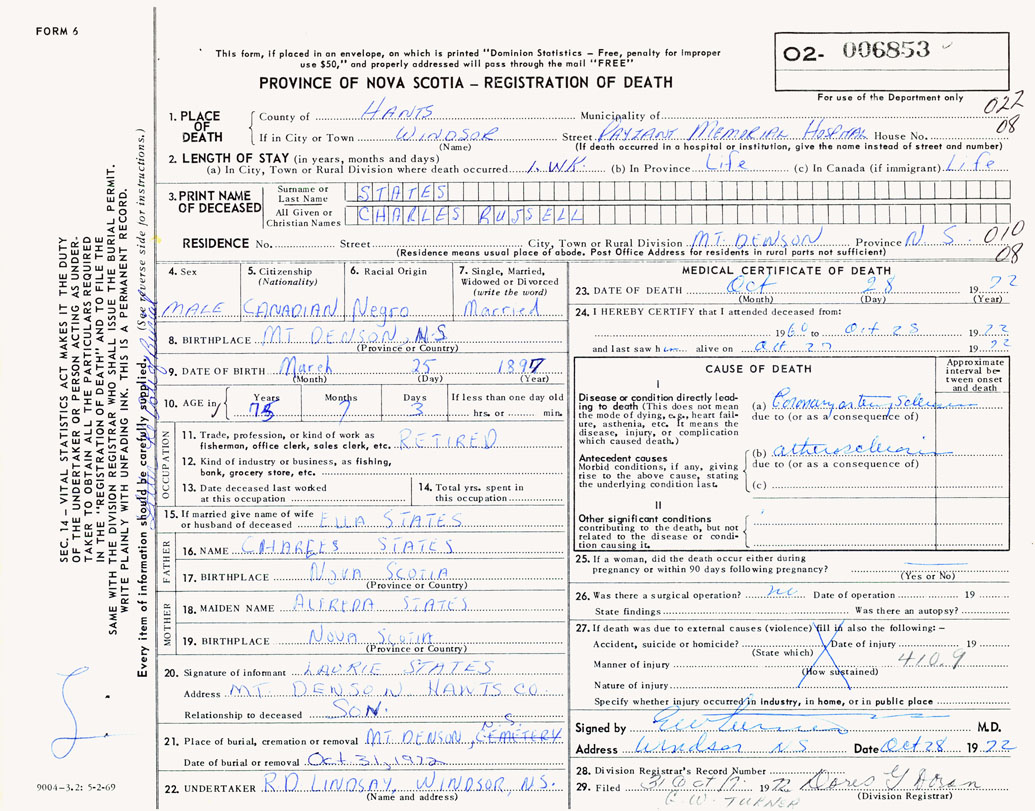 FORM 6
This form, if placed in an envelope, on which is printed "Dominion Statistics – Free, penalty for improper
use $50," and properly addressed will pass through the mail "FREE"
PROVINCE OF NOVA SCOTIA – REGISTRATION OF DEATH
02- 006853
For use of the Department only
022
08
1. PLACE OF DEATH
County of HANTS Municipality of
If in City or Town WINDSOR Street PAYZANT MEMORIAL HOSPITAL House No.
(Name) (If death occurred in a hospital or institution, give the name instead of street and number)
2. LENGTH OF STAY (in years, months and days)
(a) In City, Town or Rural Division where death occurred 1. WK. (b) In Province Life (c) In Canada (if immigrant) Life
3. PRINT NAME OF DECEASED
Surname or Last Name STATES
All Given or Christian Names CHARLES RUSSELL
RESIDENCE No. Street City, Town or Rural Division MT. DENSON Province N.S. 010
(Residence means usual place of abode. Post Office Address for residents in rural parts not sufficient) 08
4. Sex MALE
5. Citizenship (Nationality) CANADIAN
6. Racial Origin Negro
7. Single, Married, Widowed or Divorced (write the word) Married
8. BIRTHPLACE MT DENSON, N.S
(Province or Country)
9. DATE OF BIRTH March 25 1897
(Month) (Day) (Year)
10. AGE in Years 75 Months 7 Days 3 If less than one day old hrs. or min.
OCCUPATION
11. Trade, profession, or kind of work as fisherman, office clerk, sales clerk, etc. RETIRED
12. Kind of industry or business, as fishing, bank, grocery store, etc.
13. Date deceased last worked at this occupation
14. Total yrs. spent in this occupation
15. If married give name of wife or husband of deceased ELLA STATES
FATHER
16. NAME CHARLES STATES
17. BIRTHPLACE NOVA SCOTIA
(Province or Country)
MOTHER
18. MAIDEN NAME ALFREDA STATES
19. BIRTHPLACE NOVA SCOTIA
(Province or Country)
20. Signature of informant LAURIE STATES
Address MT. DENSON HANTS CO
Relationship to deceased SON.
21. Place of burial, cremation or removal MT. DENSON, N.S. CEMETERY
Date of burial or removal Oct 31, 1972
22. UNDERTAKER R.D. LINDSAY, WINDSOR, N.S.
(Name and address)
MEDICAL CERTIFICATE OF DEATH
23. DATE OF DEATH Oct 28 1972
(Month) (Day) (Year)
24. I HEREBY CERTIFY that I attended deceased from:
1960 to Oct 28 1972
and last saw him alive on Oct 27 1972
CAUSE OF DEATH
Approximate interval between onset and death
I
Disease or condition directly leading to death (This does not mean the mode of dying, e.g., heart failure, asthenia, etc. It means the disease, injury, or complication which caused death.)
(a) Coronary artery sclerosis
due to (or as a consequence of)
Antecedent causes
Morbid conditions, if any, giving rise to the above cause, stating the underlying condition last.
(b) atherosclerosis
due to (or as a consequence of)
(c)
II
Other significant conditions contributing to the death, but not related to the disease or condition causing it.
25. If a woman, did the death occur either during pregnancy or within 90 days following pregnancy?
(Yes or No)
26. Was there a surgical operation? no Date of operation 19
State findings Was there an autopsy?
27. If death was due to external causes (violence) fill in also the following: –
Accident, suicide or homicide? Date of injury 19
(State which)
Manner of injury 410.9
(How sustained)
Nature of injury
Specify whether injury occurred in industry, in home, or in public place
Signed by M.D.
Address Windsor N S Date Oct 28 1972
28. Division Registrar's Record Number
29. Filed 31 Oct 1972
(Division Registrar)
E.W. TURNER
SEC. 14 – VITAL STATISTICS ACT MAKES IT THE DUTY
OF THE UNDERTAKER OR PERSON ACTING AS UNDER-
TAKER TO OBTAIN ALL THE PARTICULARS REQUIRED
IN THE "REGISTRATION OF DEATH" AND TO FILE THE
SAME WITH THE DIVISION REGISTRAR WHO SHALL ISSUE THE BURIAL PERMIT.
WRITE PLAINLY WITH UNFADING INK. THIS IS A PERMANENT RECORD.
Every item of information should be carefully supplied. (See reverse side for instructions.)
9004-3.2: 5-2-69